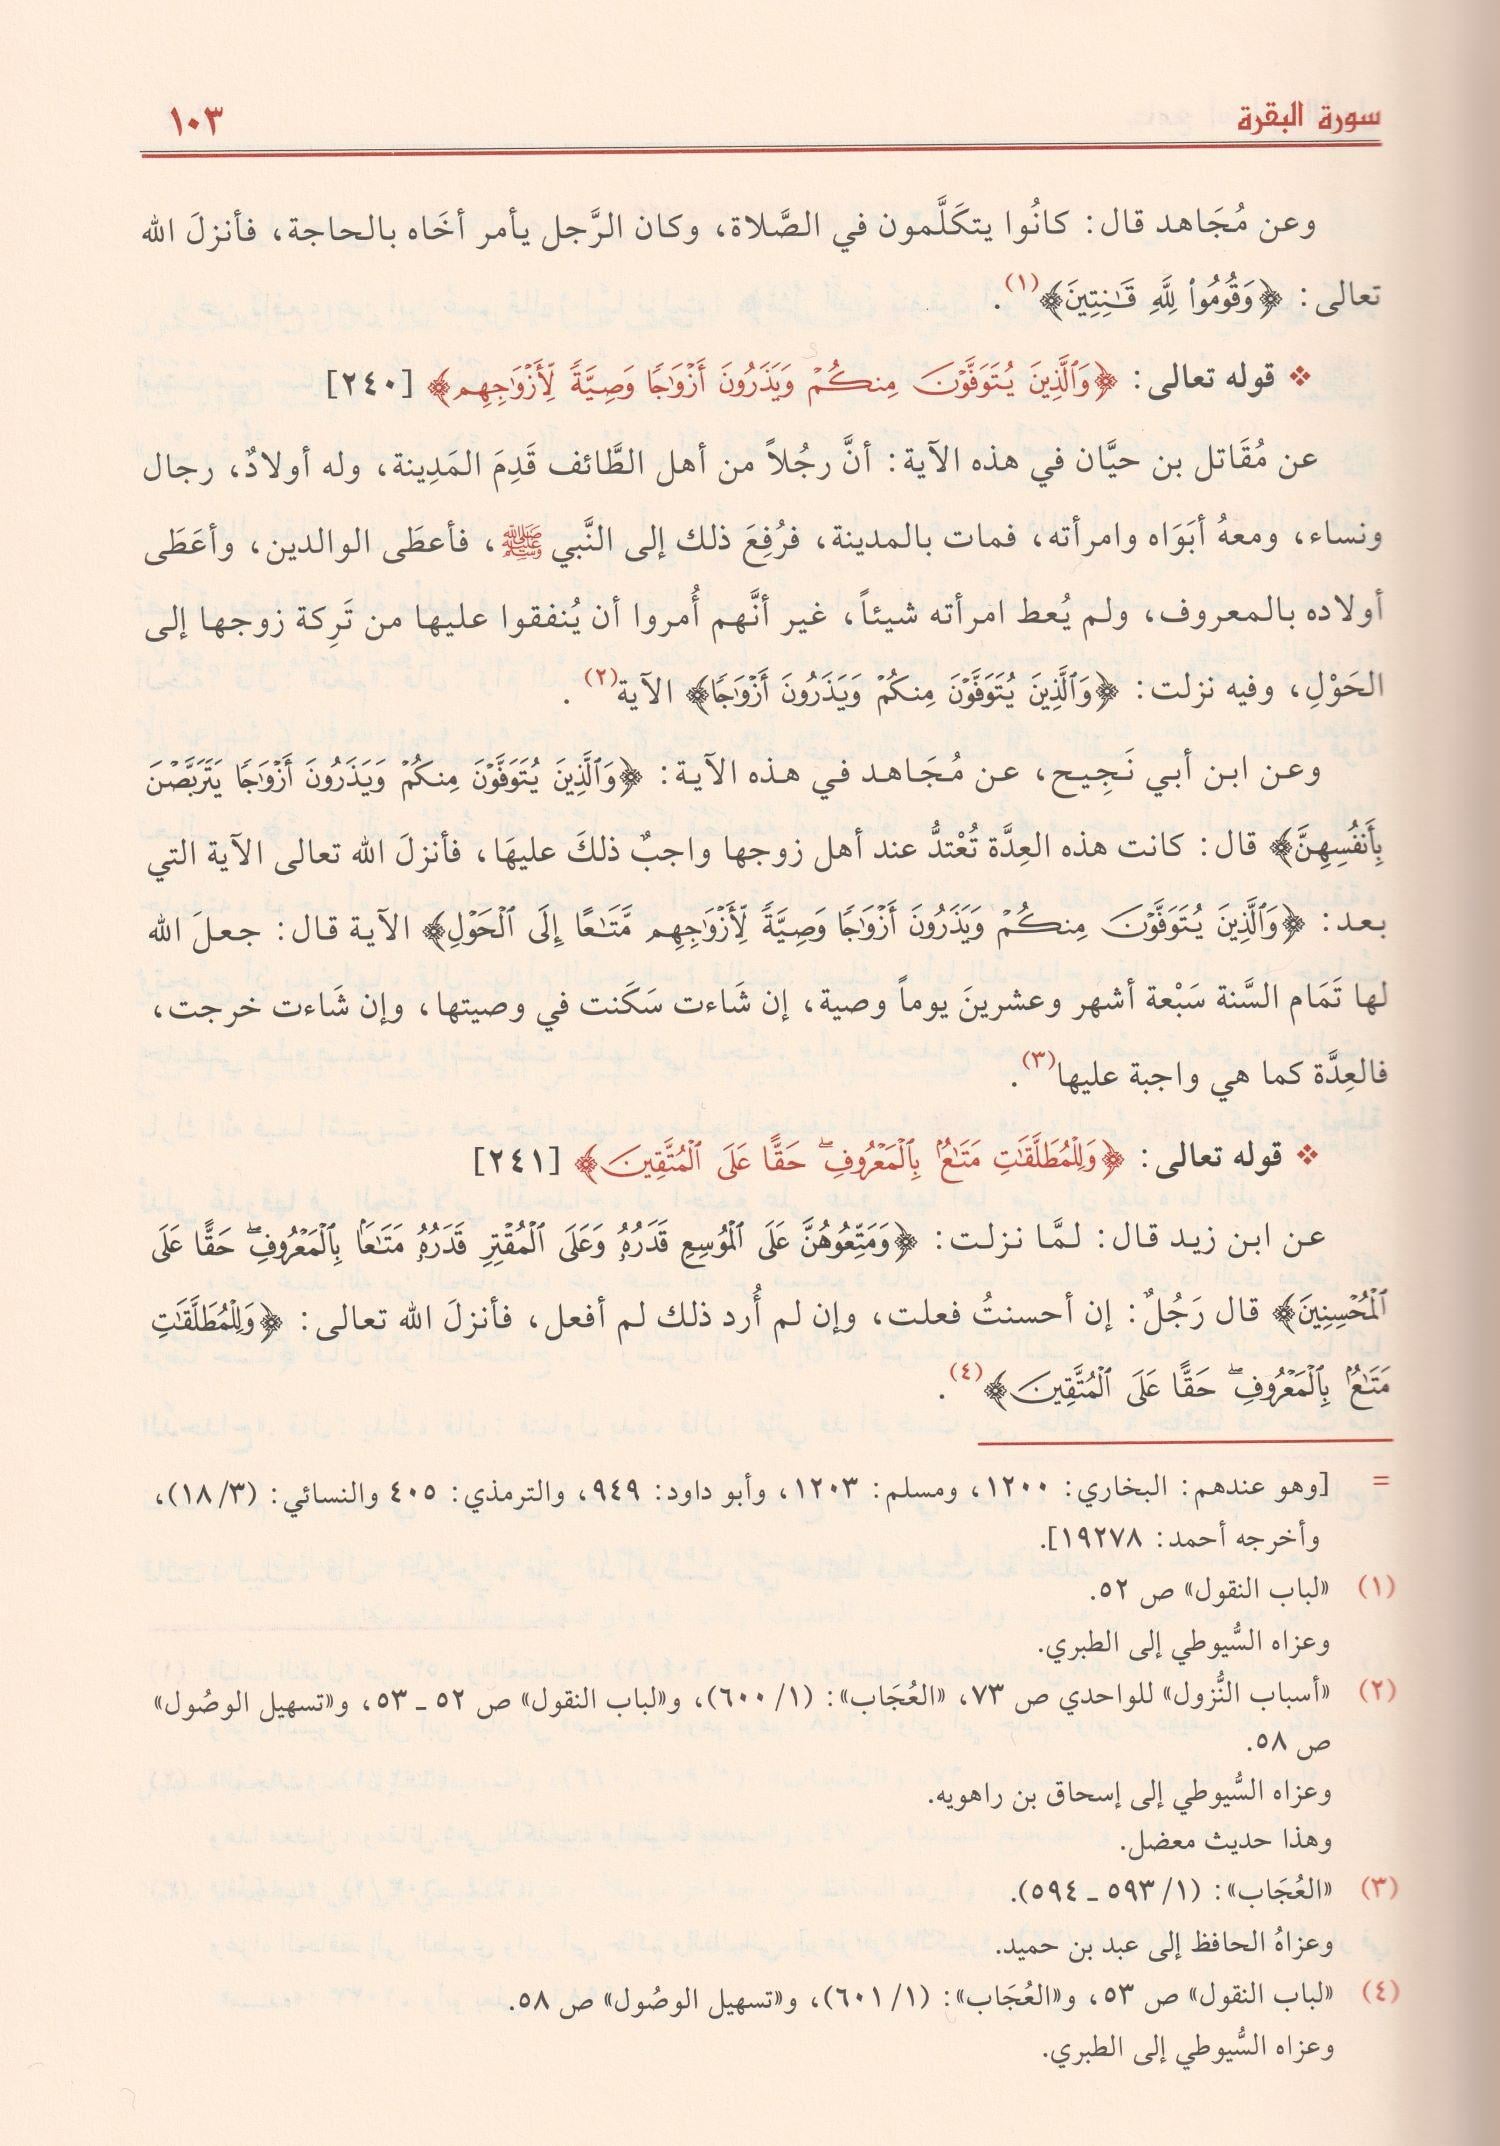 سورة البقرة ١٠٣
وعن مُجَاهد قال: كانُوا يتكَلَّمون في الصَّلاة، وكان الرَّجل يأمر أخَاه بالحاجة، فأنزلَ الله
تعالى: ﴿وَقُومُواْ لِلَّهِ قَٰنِتِينَ﴾(١).
❖ قوله تعالى: ﴿وَٱلَّذِينَ يُتَوَفَّوْنَ مِنكُمْ وَيَذَرُونَ أَزْوَٰجًا وَصِيَّةً لِّأَزْوَٰجِهِم﴾ [٢٤٠]
عن مُقَاتل بن حيَّان في هذه الآية: أنَّ رجُلاً من أهل الطَّائف قَدِمَ المَدِينة، وله أولادٌ، رجال
ونساء، ومعهُ أبَوَاه وامرأته، فمات بالمدينة، فرُفِعَ ذلك إلى النَّبي ﷺ، فأعطَى الوالدين، وأعَطَى
أولاده بالمعروف، ولم يُعط امرأته شيئاً، غير أنَّهم أُمروا أن يُنفقوا عليها من تَرِكة زوجها إلى
الحَوْلِ، وفيه نزلت: ﴿وَٱلَّذِينَ يُتَوَفَّوْنَ مِنكُمْ وَيَذَرُونَ أَزْوَٰجًا﴾ الآية(٢).
وعن ابن أبي نَجِيح، عن مُجَاهد في هذه الآية: ﴿وَٱلَّذِينَ يُتَوَفَّوْنَ مِنكُمْ وَيَذَرُونَ أَزْوَٰجًا يَتَرَبَّصْنَ
بِأَنفُسِهِنَّ﴾ قال: كانت هذه العِدَّة تُعْتدُّ عند أهل زوجها واجبٌ ذلكَ عليهَا، فأنزلَ الله تعالى الآية التي
بعد: ﴿وَٱلَّذِينَ يُتَوَفَّوْنَ مِنكُمْ وَيَذَرُونَ أَزْوَٰجًا وَصِيَّةً لِّأَزْوَٰجِهِم مَّتَٰعًا إِلَى ٱلْحَوْلِ﴾ الآية قال: جعلَ الله
لها تَمَام السَّنة سَبْعة أشهر وعشرينَ يوماً وصية، إن شَاءت سَكَنت في وصيتها، وإن شَاءت خرجت،
فالعِدَّة كما هي واجبة عليها(٣).
❖ قوله تعالى: ﴿وَلِلْمُطَلَّقَٰتِ مَتَٰعٌۢ بِٱلْمَعْرُوفِۖ حَقًّا عَلَى ٱلْمُتَّقِينَ﴾ [٢٤١]
عن ابن زيد قال: لمَّا نزلت: ﴿وَمَتِّعُوهُنَّ عَلَى ٱلْمُوسِعِ قَدَرُهُۥ وَعَلَى ٱلْمُقْتِرِ قَدَرُهُۥ مَتَٰعًۢا بِٱلْمَعْرُوفِۖ حَقًّا عَلَى
ٱلْمُحْسِنِينَ﴾ قال رَجُلٌ: إن أحسنتُ فعلت، وإن لم أُرد ذلك لم أفعل، فأنزلَ الله تعالى: ﴿وَلِلْمُطَلَّقَٰتِ
مَتَٰعٌۢ بِٱلْمَعْرُوفِۖ حَقًّا عَلَى ٱلْمُتَّقِينَ﴾(٤).
= [وهو عندهم: البخاري: ١٢٠٠، ومسلم: ١٢٠٣، وأبو داود: ٩٤٩، والترمذي: ٤٠٥ والنسائي: (١٨/٣)،
وأخرجه أحمد: ١٩٢٧٨].
(١) «لباب النقول» ص ٥٢.
وعزاه السُّيوطي إلى الطبري.
(٢) «أسباب النُّزول» للواحدي ص ٧٣، «العُجَاب»: (١/ ٦٠٠)، و«لباب النقول» ص ٥٢ ـ ٥٣، و«تسهيل الوصُول»
ص ٥٨.
وعزاه السُّيوطي إلى إسحاق بن راهويه.
وهذا حديث معضل.
(٣) «العُجَاب»: (١/ ٥٩٣ ـ ٥٩٤).
وعزاهُ الحافظ إلى عبد بن حميد.
(٤) «لباب النقول» ص ٥٣، و«العُجَاب»: (١/ ٦٠١)، و«تسهيل الوصُول» ص ٥٨.
وعزاه السُّيوطي إلى الطبري.